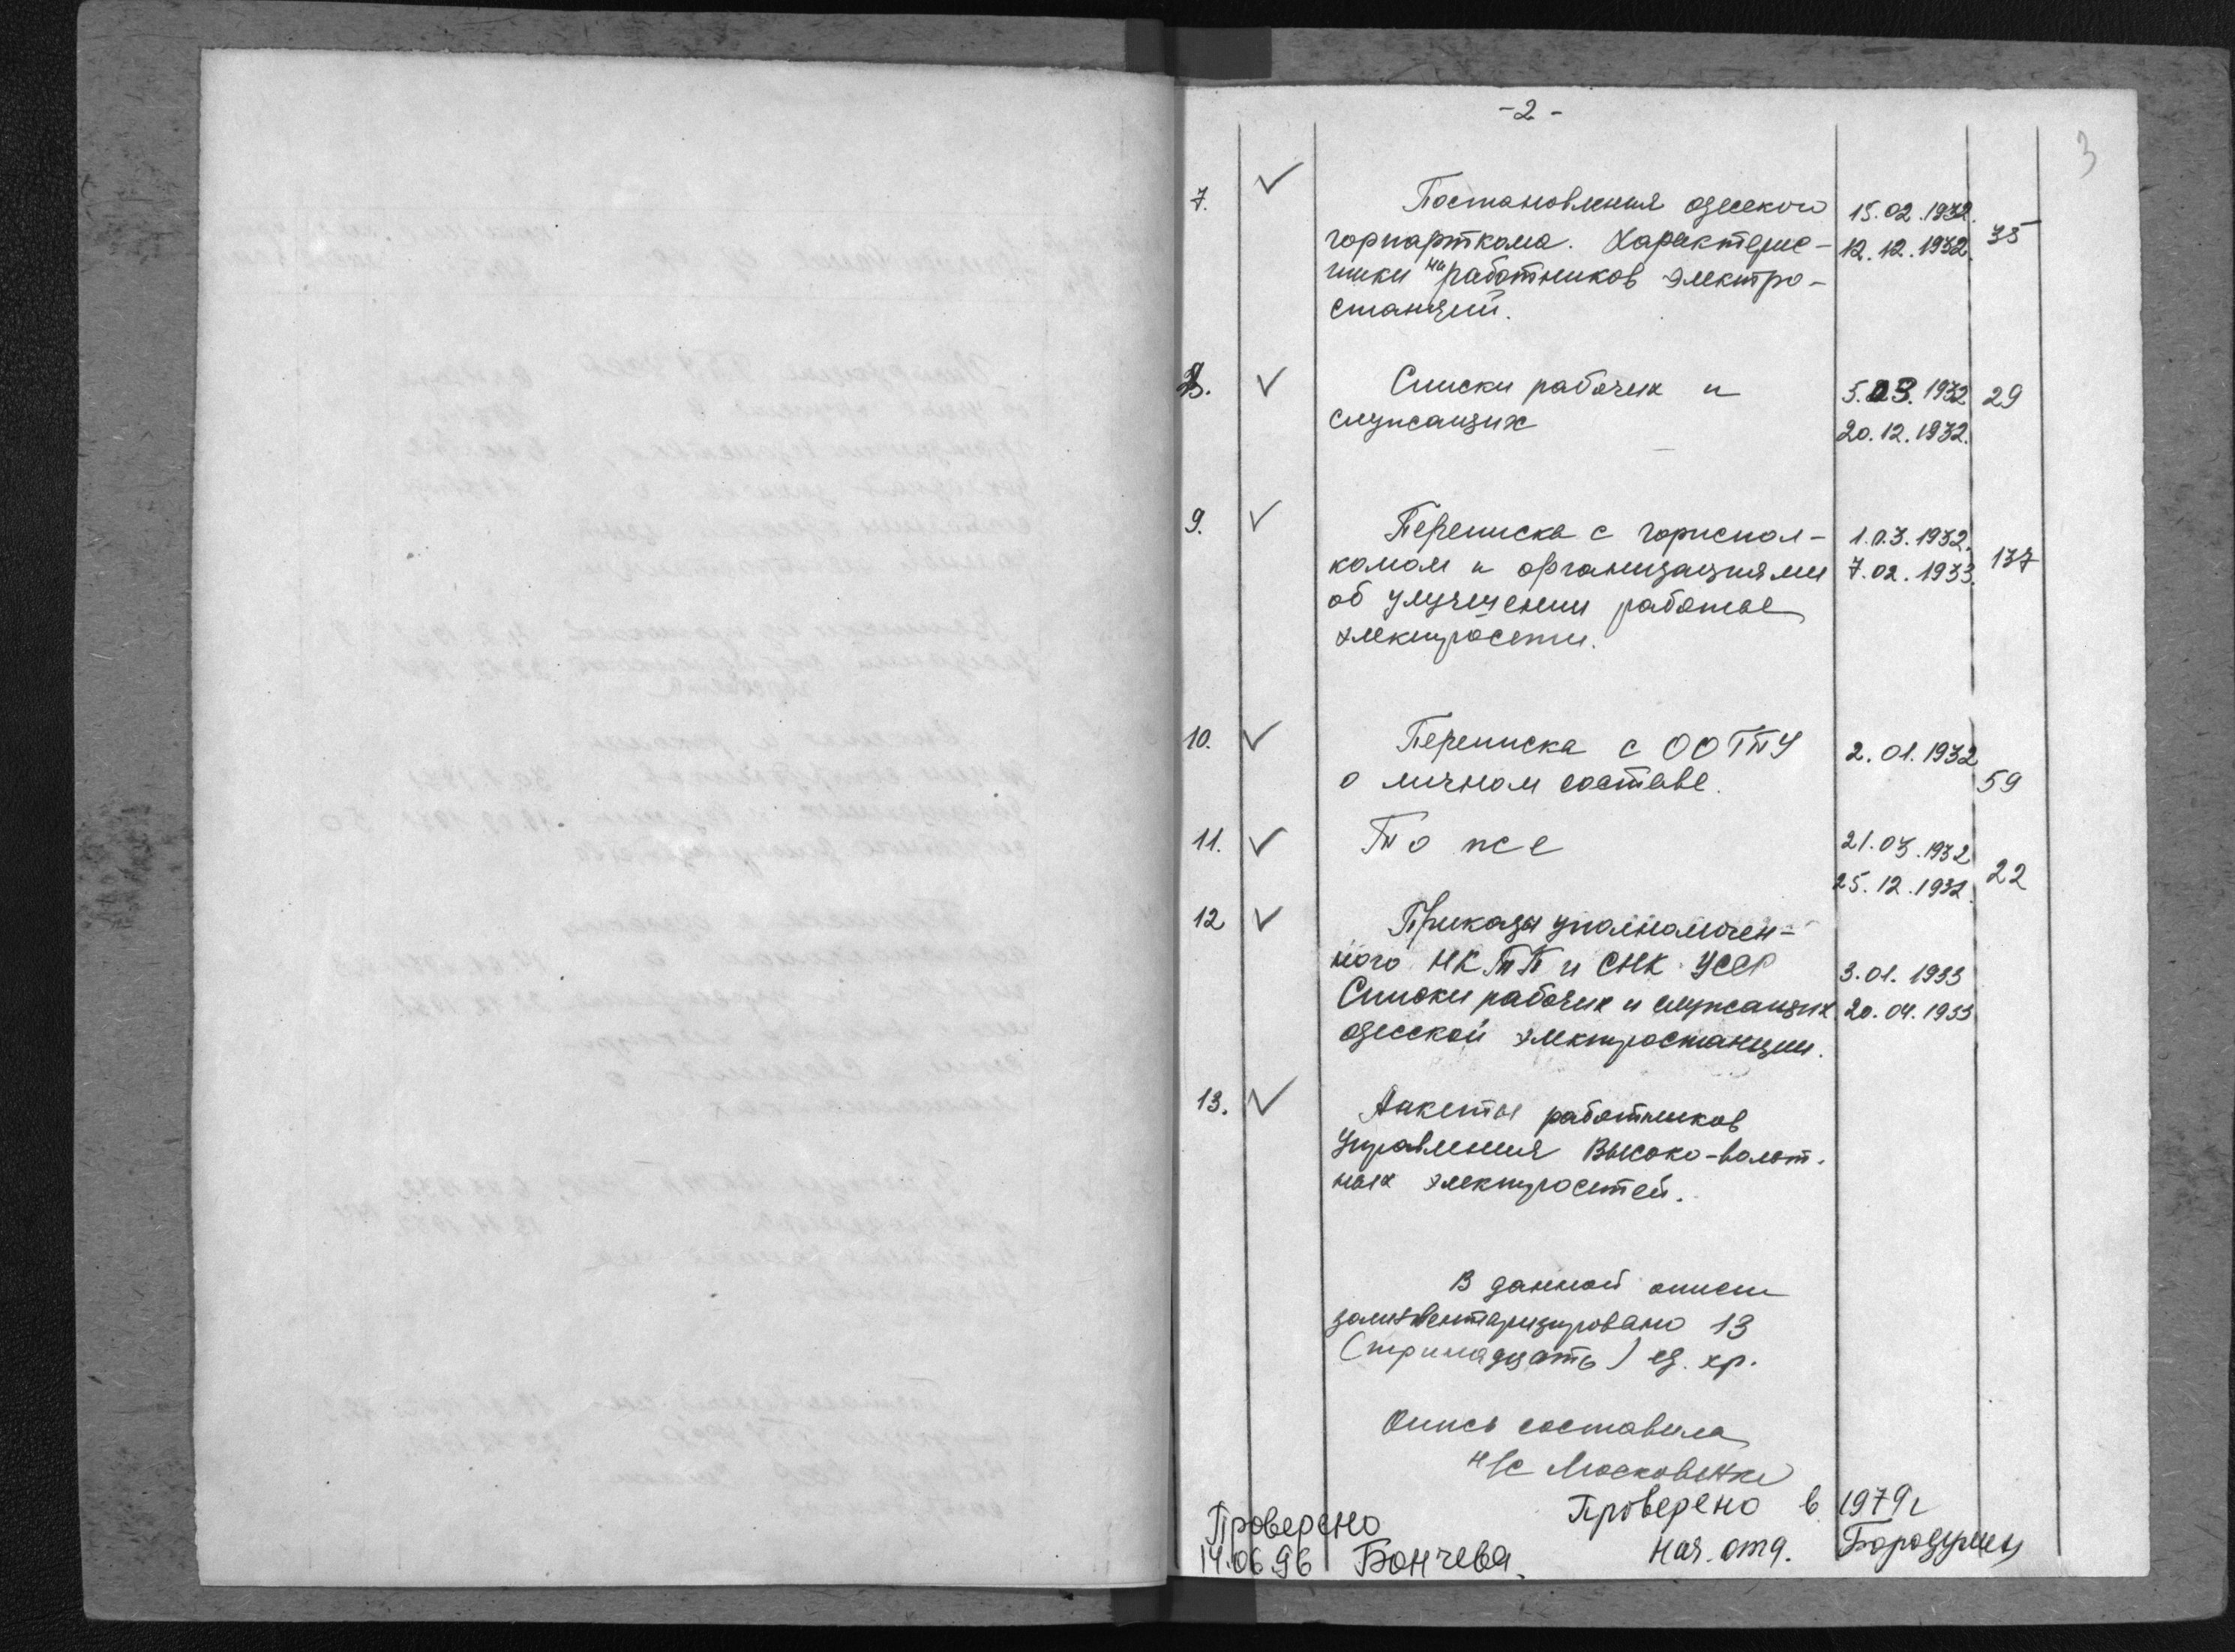 -2-
3
7. Постановления одесского 15.02.1932.
горпарткома. Характерис- 12.12.1932. 35
тики на работников электро-
станций.
8. Списки рабочих и 5.03.1932 29
служащих 20.12.1932.
9. Переписка с гориспол- 1.03.1932.
комом и организациями 7.02.1933. 137
об улучшении работы
электросети.
10. Переписка с ООГПУ 2.01.1932
о личном составе. 59
11. То же 21.03.1932
25.12.1932. 22
12 Приказы уполномочен-
ного НКТП и СНК УССР 3.01.1933
Списки рабочих и служащих 20.04.1933
одесской электростанции.
13. Анкеты работников
Управления Высоко-вольт.
ных электросетей.
В данной описи
заинвентаризировано 13
(тринадцать) ед. хр.
Опись составила
н/с Московенко
Проверено в 1979г
нач. отд.
Проверено
14.06.96 Бончева.